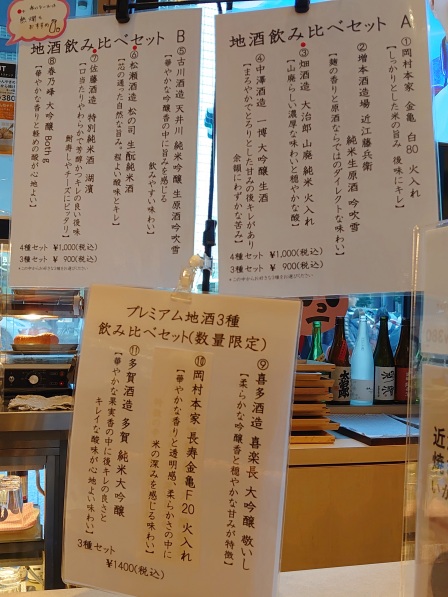 地酒飲み比べセット A
①岡村本家 金亀 白80 火入れ
【しっかりとした米の旨み 後味にキレ】
②増本酒造場 近江藤兵衛
純米生原酒 吟吹雪
【麹の香りと原酒ならではのダイレクトな味わい】
③畑酒造 大治郎 山廃 純米 火入れ
【山廃らしい濃厚な味わいと穏やかな酸】
④中澤酒造 一博 大吟醸 生酒
【まろやかでとろりとした甘みの後キレがあり
余韻にわずかな苦み】
4種セット ¥1,000(税込)
3種セット ¥ 900(税込)
地酒飲み比べセット B
⑤古川酒造 天井川 純米吟醸 生原酒 吟吹雪
【華やかな吟醸香の中に旨みを感じる
飲みやすい味わい】
⑥松瀬酒造 松の司 生酛純米酒
【芯の通った自然な旨み。程よい酸味とキレ】
⑦佐藤酒造 特別純米酒 湖濱
【口当たりやわらかで芳醇かつキレの良い後味
鮒寿しやチーズにピッタリ】
⑧春乃峰 大吟醸 Both G
【華やかな香りと軽めの酸が心地よい】
4種セット ¥1,000(税込)
3種セット ¥ 900(税込)
プレミアム地酒3種
飲み比べセット(数量限定)
⑨喜多酒造 喜楽長 大吟醸 敬いし
【柔らかな吟醸香と穏やかな甘みが特徴】
⑩岡村本家 長寿金亀F20 火入れ
【華やかな香りと透明感、柔らかさの中に
米の深みを感じる味わい】
⑪多賀酒造 多賀 純米大吟醸
【華やかな果実香の中に後キレの良さと
キレイな酸味が心地よい味わい】
3種セット
¥1400(税込)